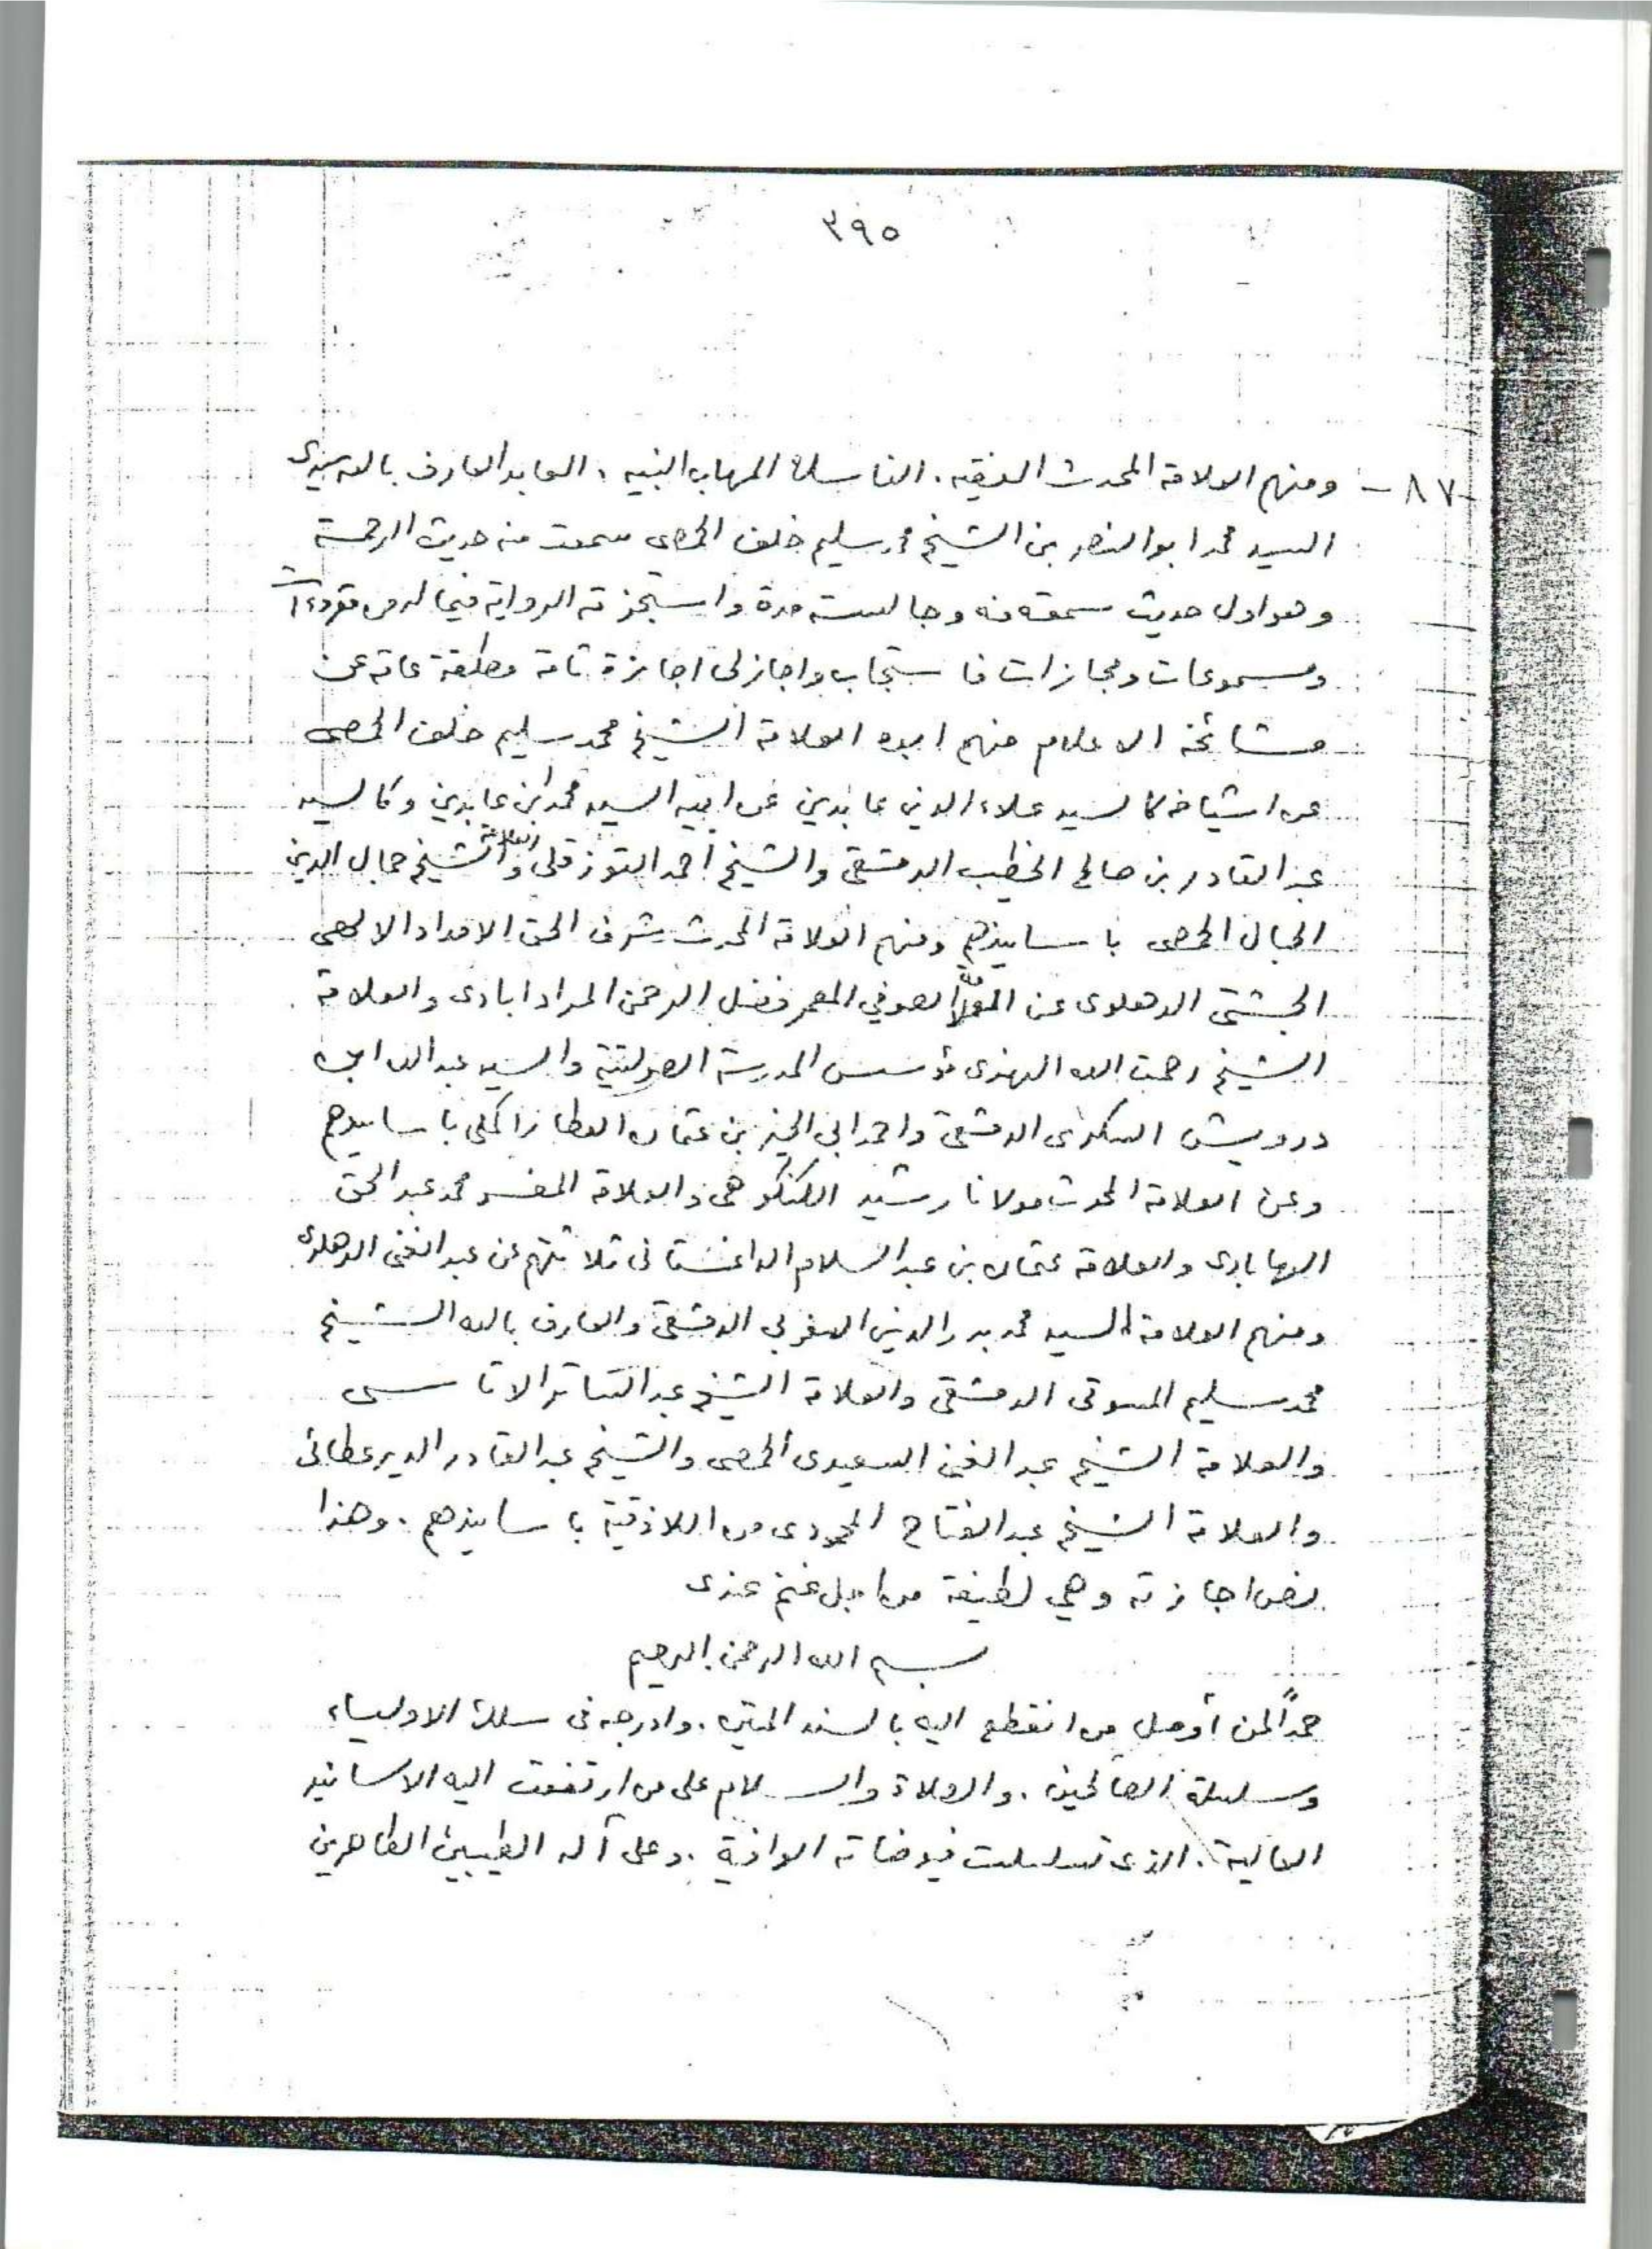 ٣٩٥
-٨٧- ومنهم العلامة المحدث الفقيه. الناسك المهاب النبيه. العابد العارف بالله سيدى
السيد محمد ابو النصر بن الشيخ محمد سليم خلف الحمصى سمعت منه حديث الرحمة
وهو اول حديث سمعته منه وجالسته مدة واستجزته الرواية فيما له من مقروءات
ومسموعات ومجازات فاستجاب واجازلى اجازة تامة مطلقة عامة عن
مشائخه الاعلام منهم ابوه العلامة الشيخ محمد سليم خلف الحمصى
عن اشياخه كالسيد علاء الدين عابدين عن ابيه السيد محمد ابن عابدين وكالسيد
عبد القادر بن صالح الخطيب الدمشقى والشيخ احمد التوزقلى والعلامة الشيخ جمال الدين
الجمال الحمصى باسانيدهم ومنهم العلامة المحدث شرف الحق الامداد الالهى
الجشتى الدهلوى عن الصوفي المعمر فضل الرحمن المراد ابادى والعلامة
الشيخ رحمت الله الهندى مؤسس المدرسة الصولتية والسيد عبد الله ابن
درويش السكرى الدمشقى واحمد ابى الخير بن عثمان العطار المكى باسانيدهم
وعن العلامة المحدث مولانا رشيد الكنكوهى والعلامة المفسر محمد عبد الحق
الهابادى والعلامة عثمان بن عبد السلام الداغستانى ثلاثتهم عن عبد الغنى الدهلوى
ومنهم العلامة السيد محمد بدر الدين المغربى الدمشقى والعارف بالله الشيخ
محمد سليم المسوتى الدمشقى والعلامة الشيخ عبد الساتر الاتاسى
والعلامة الشيخ عبد الغنى السعيدى الحمصى والشيخ عبد القادر الديرعطائى
والعلامة الشيخ عبد الفتاح المحمودى من اللاذقية باسانيدهم. وهذا
نص اجازته وهي لطيفة من اجل غنم عندى
بسم الله الرحمن الرحيم
حمدًا لمن أوصل من انقطع اليه بالسند المتين. وادرجه فى سلك الاولياء
وسلسلة الصالحين. والصلاة والسلام على من ارتفعت اليه الاسانيد
العالية. الذى تسلسلت فيوضاته الوافية. وعلى آله الطيبين الطاهرين